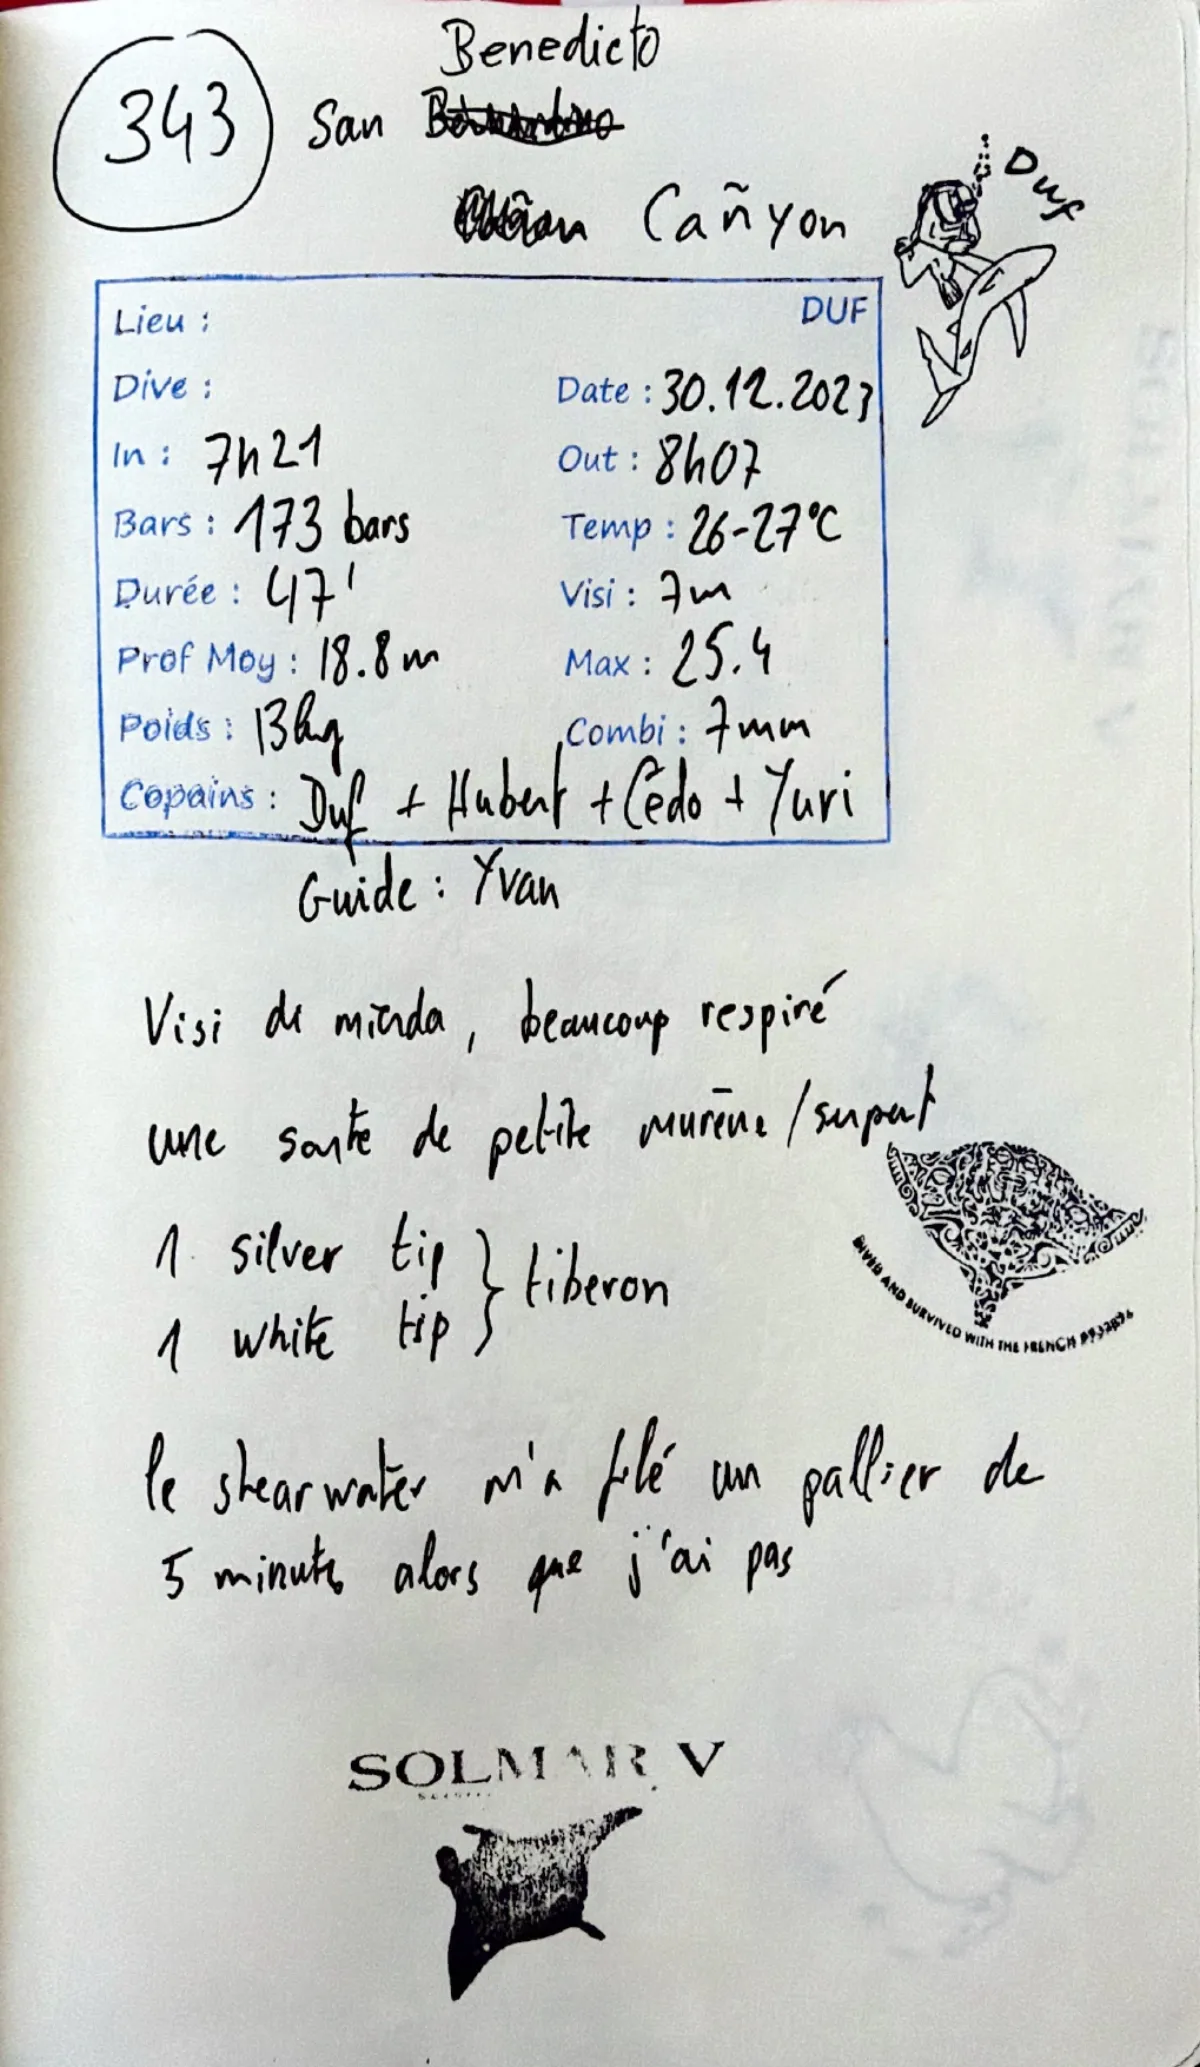 Benedicto
343 San
Cañyon
Duf
Lieu : DUF
Dive : Date : 30.12.2023
In : 7h21 Out : 8h07
Bars : 173 bars Temp : 26-27°C
Durée : 47' Visi : 7m
Prof Moy : 18.8 m Max : 25.4
Poids : 13kg Combi : 7mm
Copains : Duf + Hubert + Cédo + Yuri
Guide : Yvan
Visi de mierda, beaucoup respiré
une sorte de petite murène / serpent
1 silver tip } tiberon
1 white tip
DIVED AND SURVIVED WITH THE FRENCH
le shearwater m'a filé un pallier de
5 minutes alors que j'ai pas
SOLMAR V